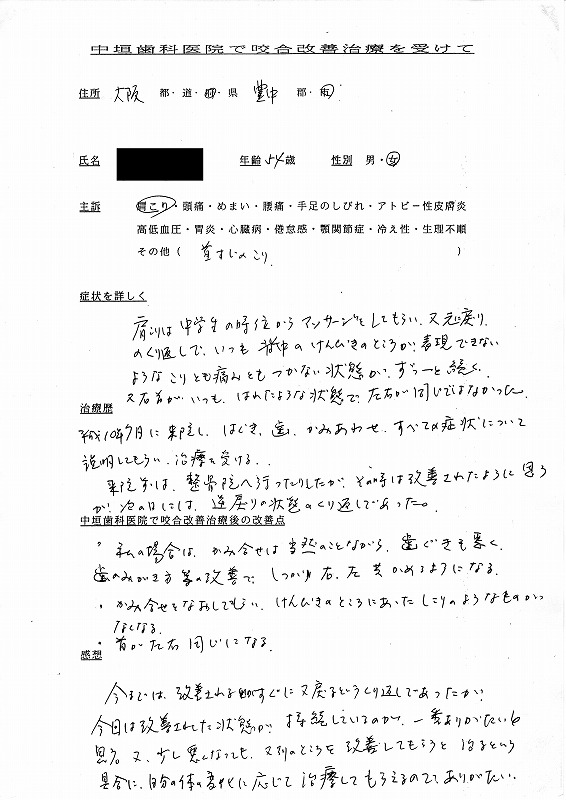 中垣歯科医院で咬合改善治療を受けて
住所 大阪 都・道・府・県 豊中 郡・市
氏名 年齢 54歳 性別 男・女
主訴 肩こり・頭痛・めまい・腰痛・手足のしびれ・アトピー性皮膚炎
高低血圧・胃炎・心臓病・倦怠感・顎関節症・冷え性・生理不順
その他( 首すじのこり )
症状を詳しく
肩こりは中学生の時位からアンサージをしてもらい、又元に戻り、
のくり返しで、いつも背中のけんびきのところが、表現できない
ようなこりとも病んともつかない状態が、ずうーと続く。
又右首がいつも、はれたような状態で、左右が同じではなかった。
治療歴
平成10年9月に来院し、はぐき、歯、かみあわせ、すべての症状について
説明してもらい、治療を受ける。
来院前は、整骨院へ行ったりしたが、その時は改善されたように思う
が、次の日には、逆戻りの状態のくり返しであった。
中垣歯科医院で咬合改善治療後の改善点
・私の場合は、かみ合せは当然のことながら、歯ぐきも悪く、
歯のみがき方等の改善で、しっかり右、左共かめるようになる。
・かみ合せをなおしてもらい、けんびきのところにあったしこりのようなものが
なくなる。
・首が左右同じになる。
感想
今までは、改善されるが、すぐに又戻るというくり返しであったが、
今回は改善された状態が、持続しているのが、一番ありがたいと
思う。又、少し悪くなっても、又そのところを改善してもらうと治るという
具合に、自分の体の変化に応じて治療してもらえるので、ありがたい。